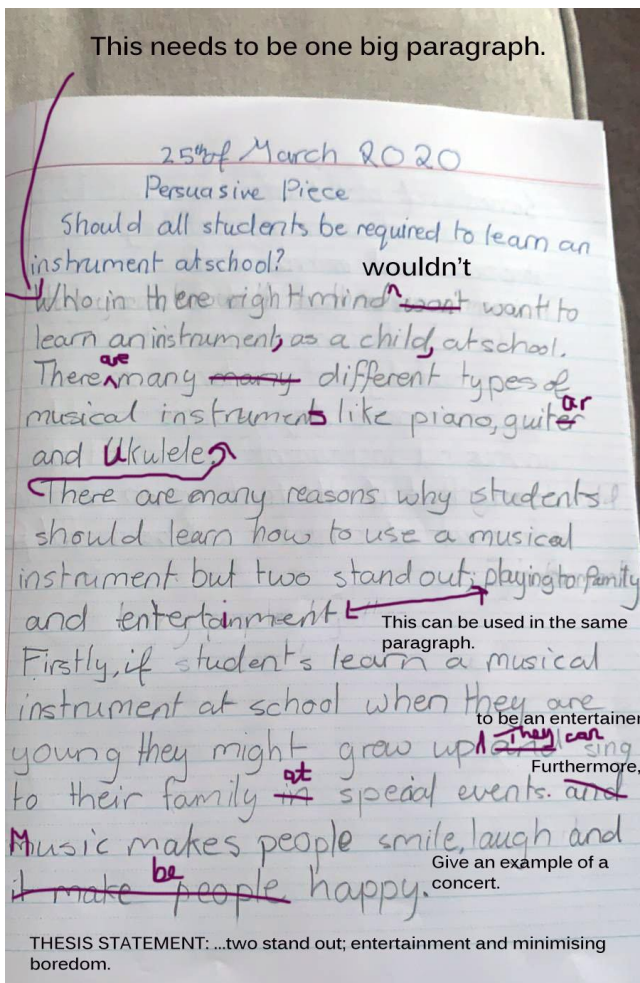 This needs to be one big paragraph.
25th of March 2020
Persuasive Piece
Should all students be required to learn an
instrument at school?
wouldn't
Who in there right mind want to
learn an instrument, as a child, at school.
are
There many many different types of
ar
musical instruments like piano, guiter
and Ukulele.
There are many reasons why students
should learn how to use a musical
instrument but two stand out; playing to family
and entertainment
This can be used in the same
paragraph.
Firstly, if students learn a musical
instrument at school when they are
to be an entertainer
They can
young they might grow up and sing
Furthermore,
at
to their family in special events. and
Music makes people smile, laugh and
be
Give an example of a
concert.
it make people happy.
THESIS STATEMENT: ...two stand out; entertainment and minimising
boredom.